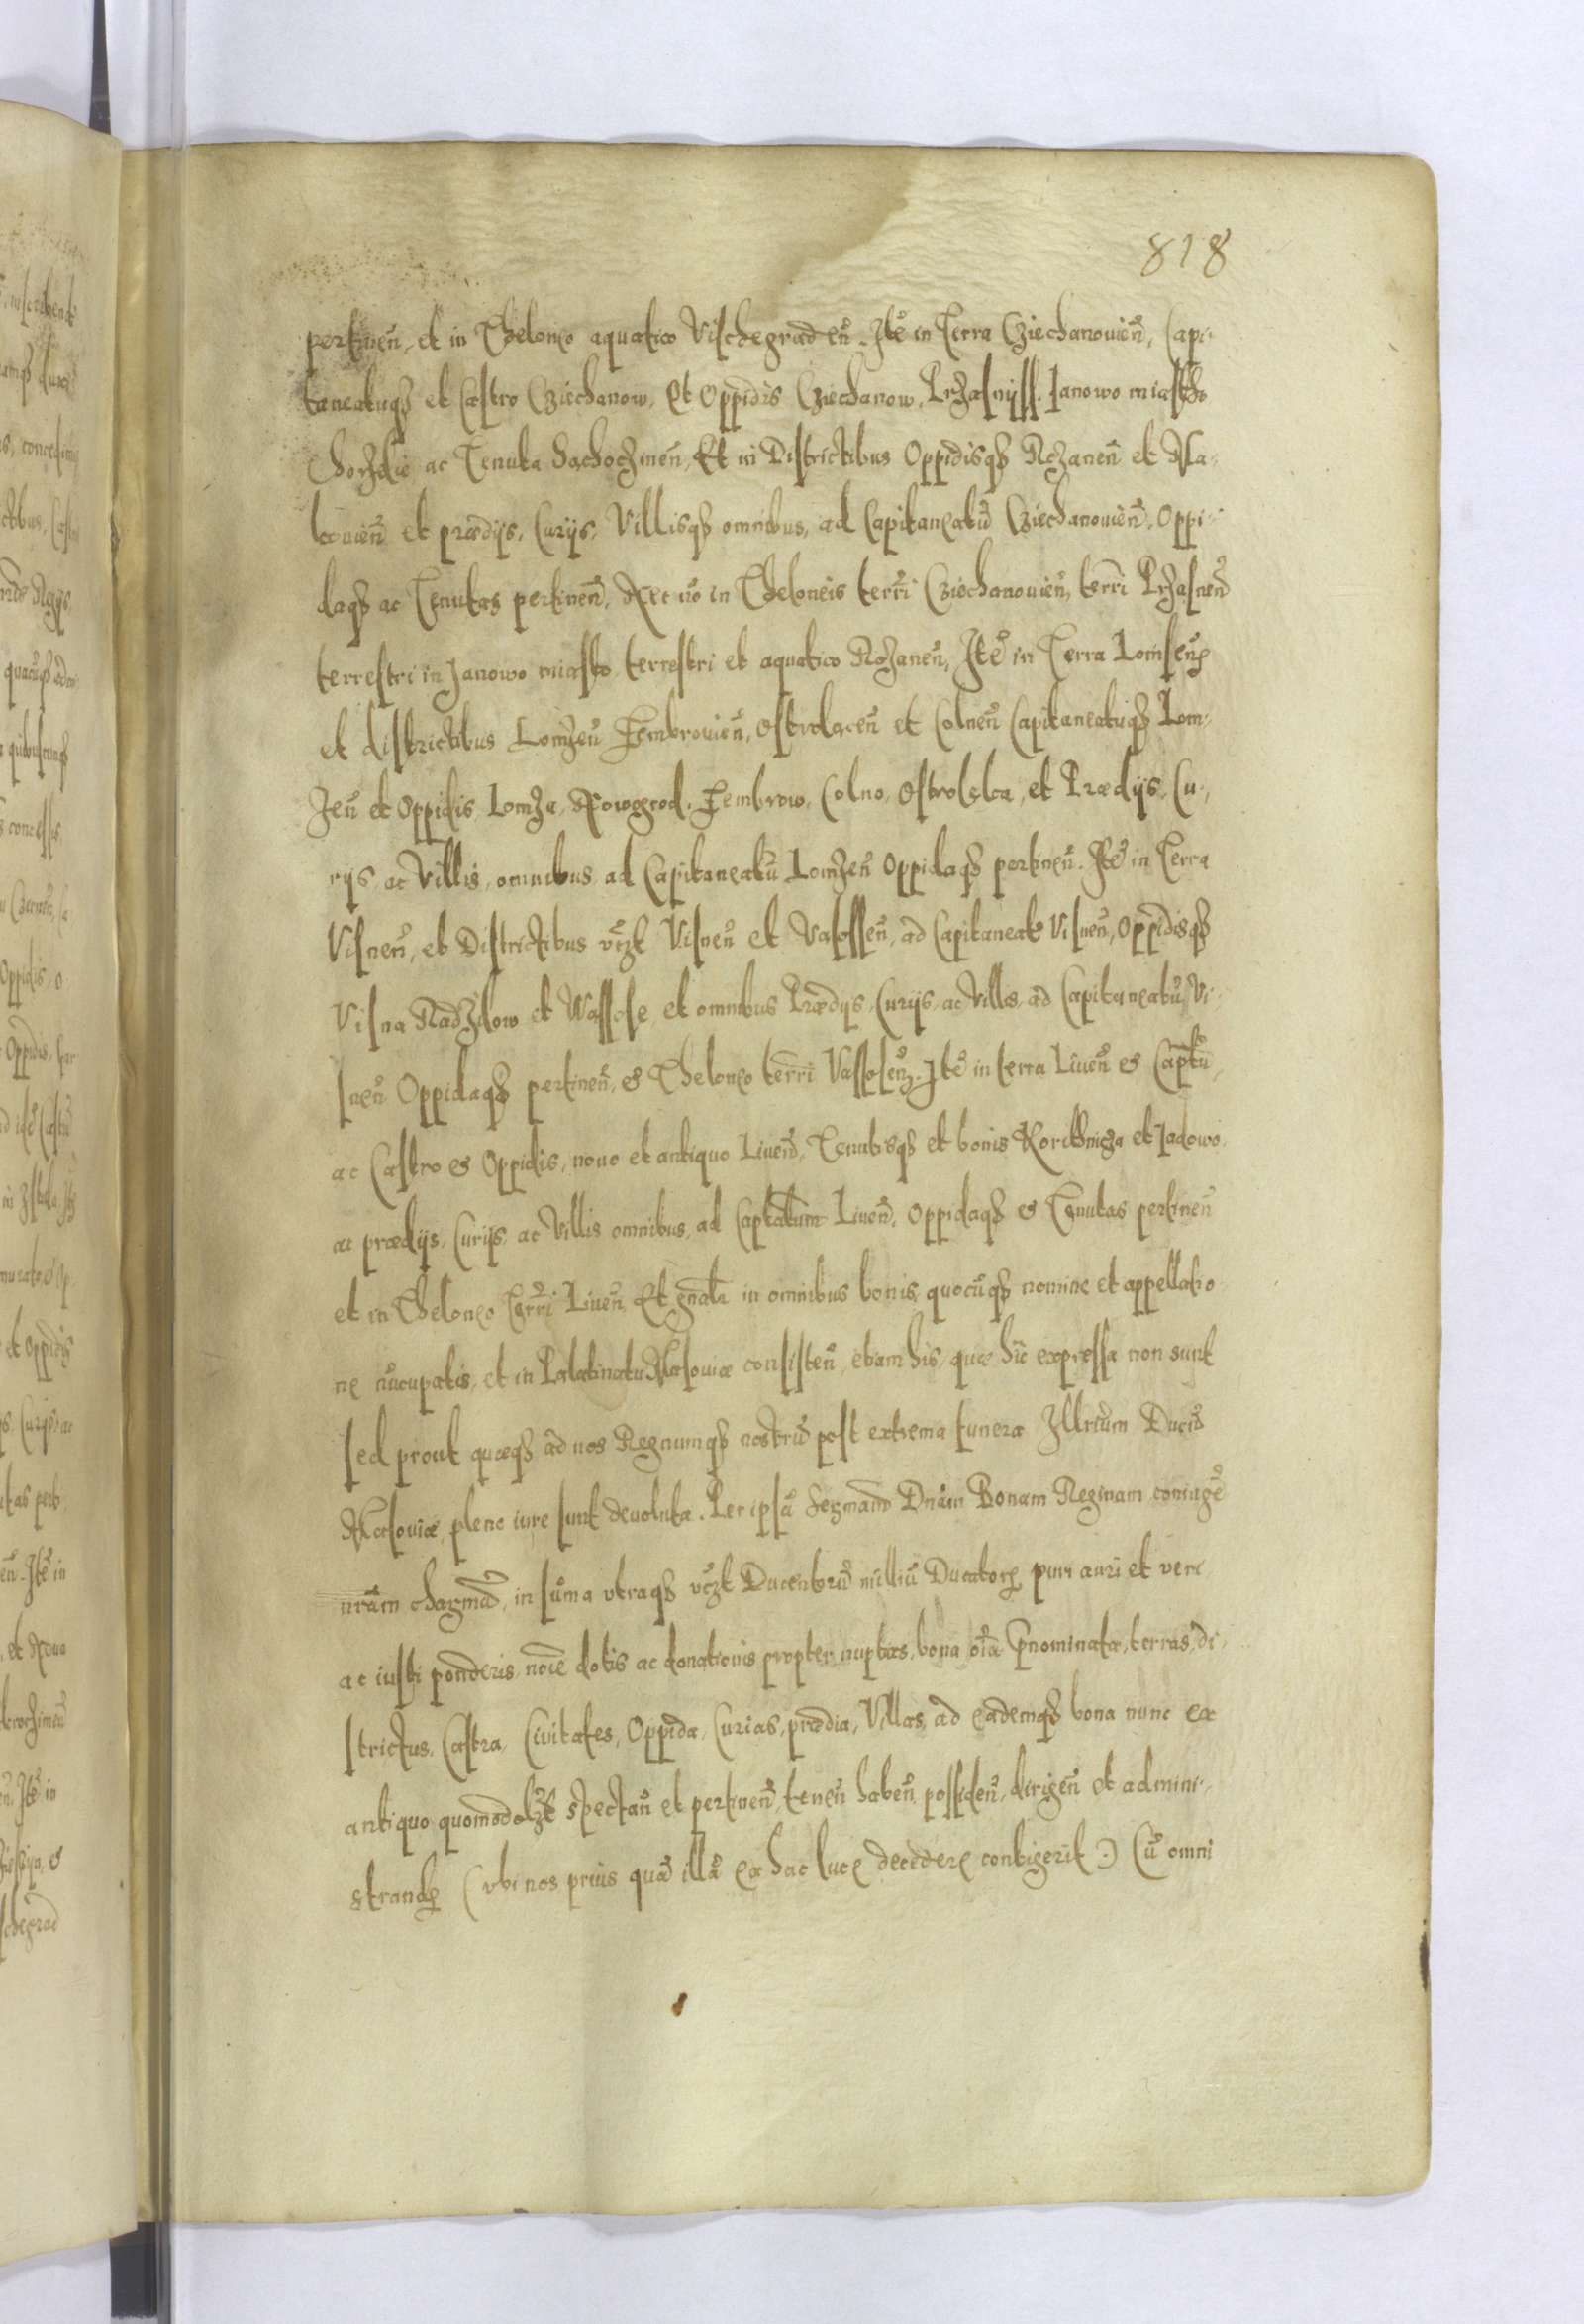 818
pertineñ, et in Theloneo aquatico Vischegradeñ. Itẽ in Terra Cziechanovieñ, Capi-
taneatuqȝ et Castro Cziechanow, Et Oppidis Cziechanow, Przasnyss. Janowo miastho
Chorzelie ac Tenuta Sachoczineñ, Et in Districtibus Oppidisqȝ Rozaneñ et Ma-
kovieñ et prædijs, Curijs, Villisqȝ omnibus, ad Capitaneatũ Cziechanovieñ, Oppi-
daqȝ ac Tenutas pertineñ, Nec nõ in Theloneis terrĩ Cziechanovieñ, terrĩ Przasneñ
terrestri in Janowo miasto, terrestri et aquatico Rozaneñ, Itẽ in Terra Lomseñ,
et districtibus Lomzeñ Zembrovieñ, Ostrolaceñ et Colneñ Capitaneatuqȝ Lom-
zeñ et Oppidis Lomza, Nowogrod. Zembrow, Colno, Ostrolęka, et Prædijs, Cu-
rijs, ac Villis, omnibus ad Capitaneatũ Lomzeñ Oppidaqȝ pertineñ. Itẽ in Terra
Visneñ, et Districtibus vtȝt Visneñ et Vasosseñ, ad Capitaneat Visneñ, Oppidisqȝ
Visna Radzilow et Wassose, et omnibus Prædijs, Curijs, ac Villas, ad Capitaneatũ Vi-
sneñ Oppidaqȝ pertineñ, & Theloneo terrĩ Vassoseñ. Itẽ in terra Liveñ & Captũ,
ac Castro & Oppidis, novo et antiquo Liveñ, Tenutisqȝ et bonis Korithnicza et Jadowo
ac prædijs, Curijs, ac Villis omnibus, ad Captatum Liveñ, Oppidaqȝ & Tenutas pertineñ
et in Theloneo Terrĩ Liveñ, Et gñatr in omnibus bonis, quocũqȝ nomine et appellatio-
ne nũcupatis, et in Palatinatu Masoviæ consisteñ, etiam his, quæ hîc expressa non sunt
sed prout quæqȝ ad nos Regnumqȝ nostrũ post extrema funera Illrium Ducũ
Masoviæ, pleno iure sunt devoluta. Per ipsã Sergmam Dnãm Bonam Reginam coniugẽ
nrãm chargmã, in sũma utraqȝ vtȝt Ducentorũ milliũ Ducatorꝝ puri auri et veri
ac iusti ponderis, noĩe dotis ac donationis propter nuptias, bona oĩa p̃nominata, terras, di-
strictus, Castra, Civitates, Oppida, Curias, prædia, Villas, ad eademqȝ bona nunc ex
antiquo quomodolȝt spectañ et pertineñ, teneñ habeñ, possideñ, dirigeñ et admini-
strandꝫ (ubi nos prius quã illã ex hac luce decedere contigerit:) Cũ omni